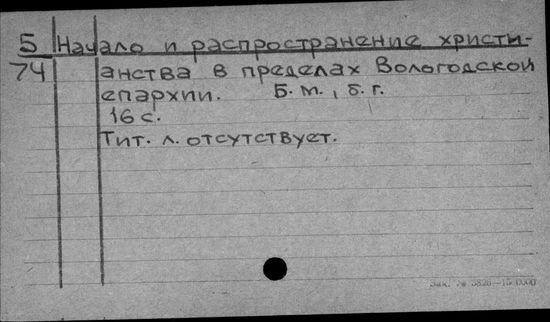 5 Начало и распространение христи-
74 анства в пределах Вологодской
епархии. Б. м., б. г.
16 с.
Тит. л. отсутствует.
Зак. №